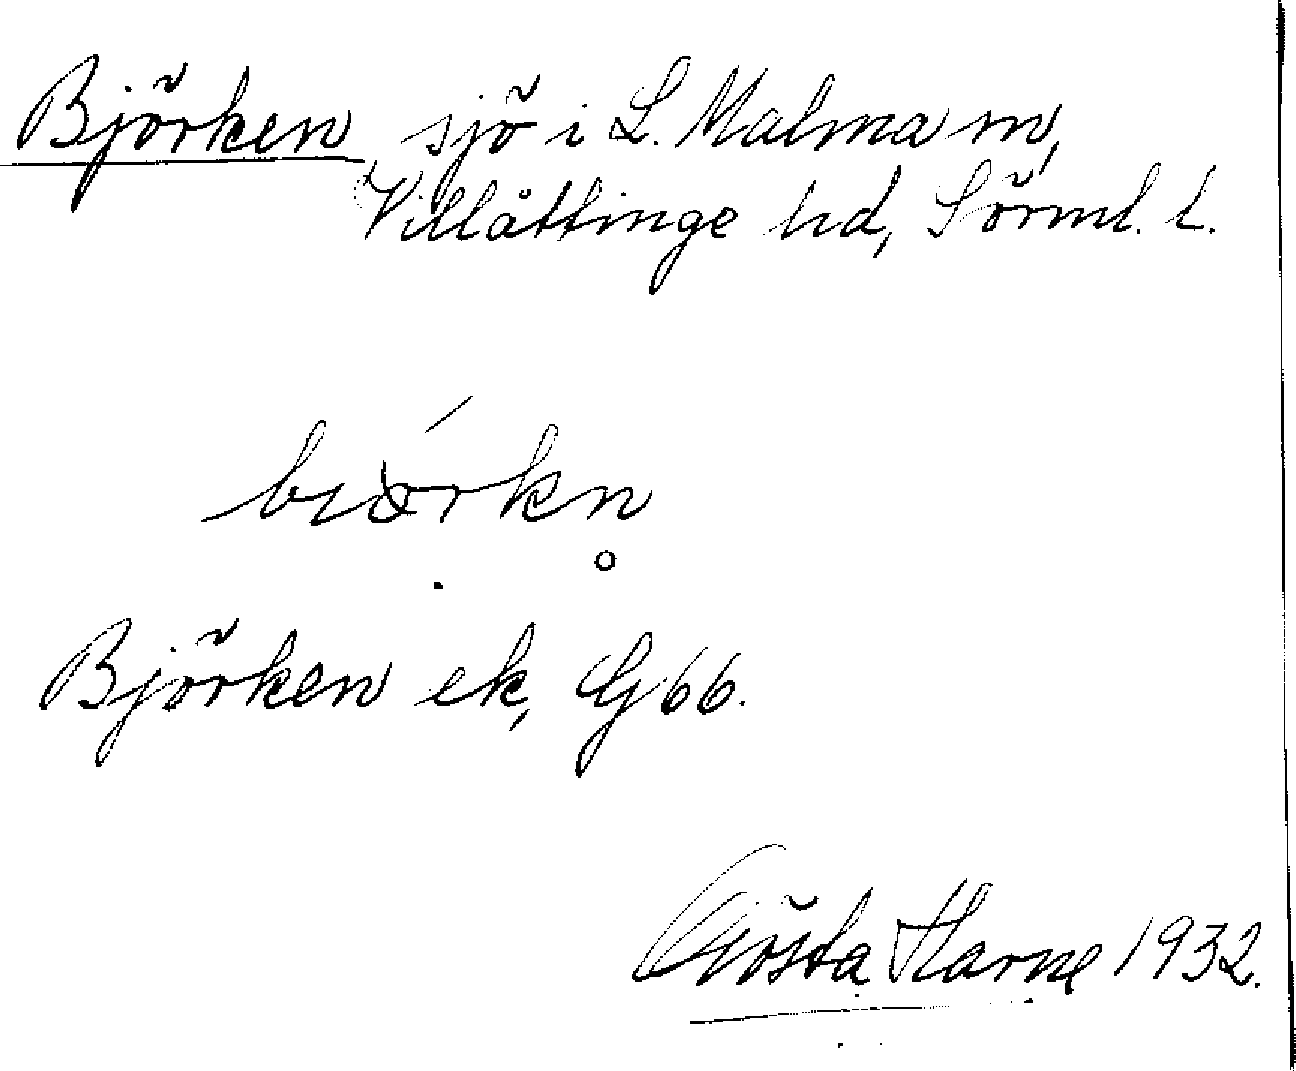 Björken, sjö i L. Malma sn,
Villåttinge hd, Sörml. l.
biǿrkn̥
Björken ek, G 66.
Gösta Harne 1932.